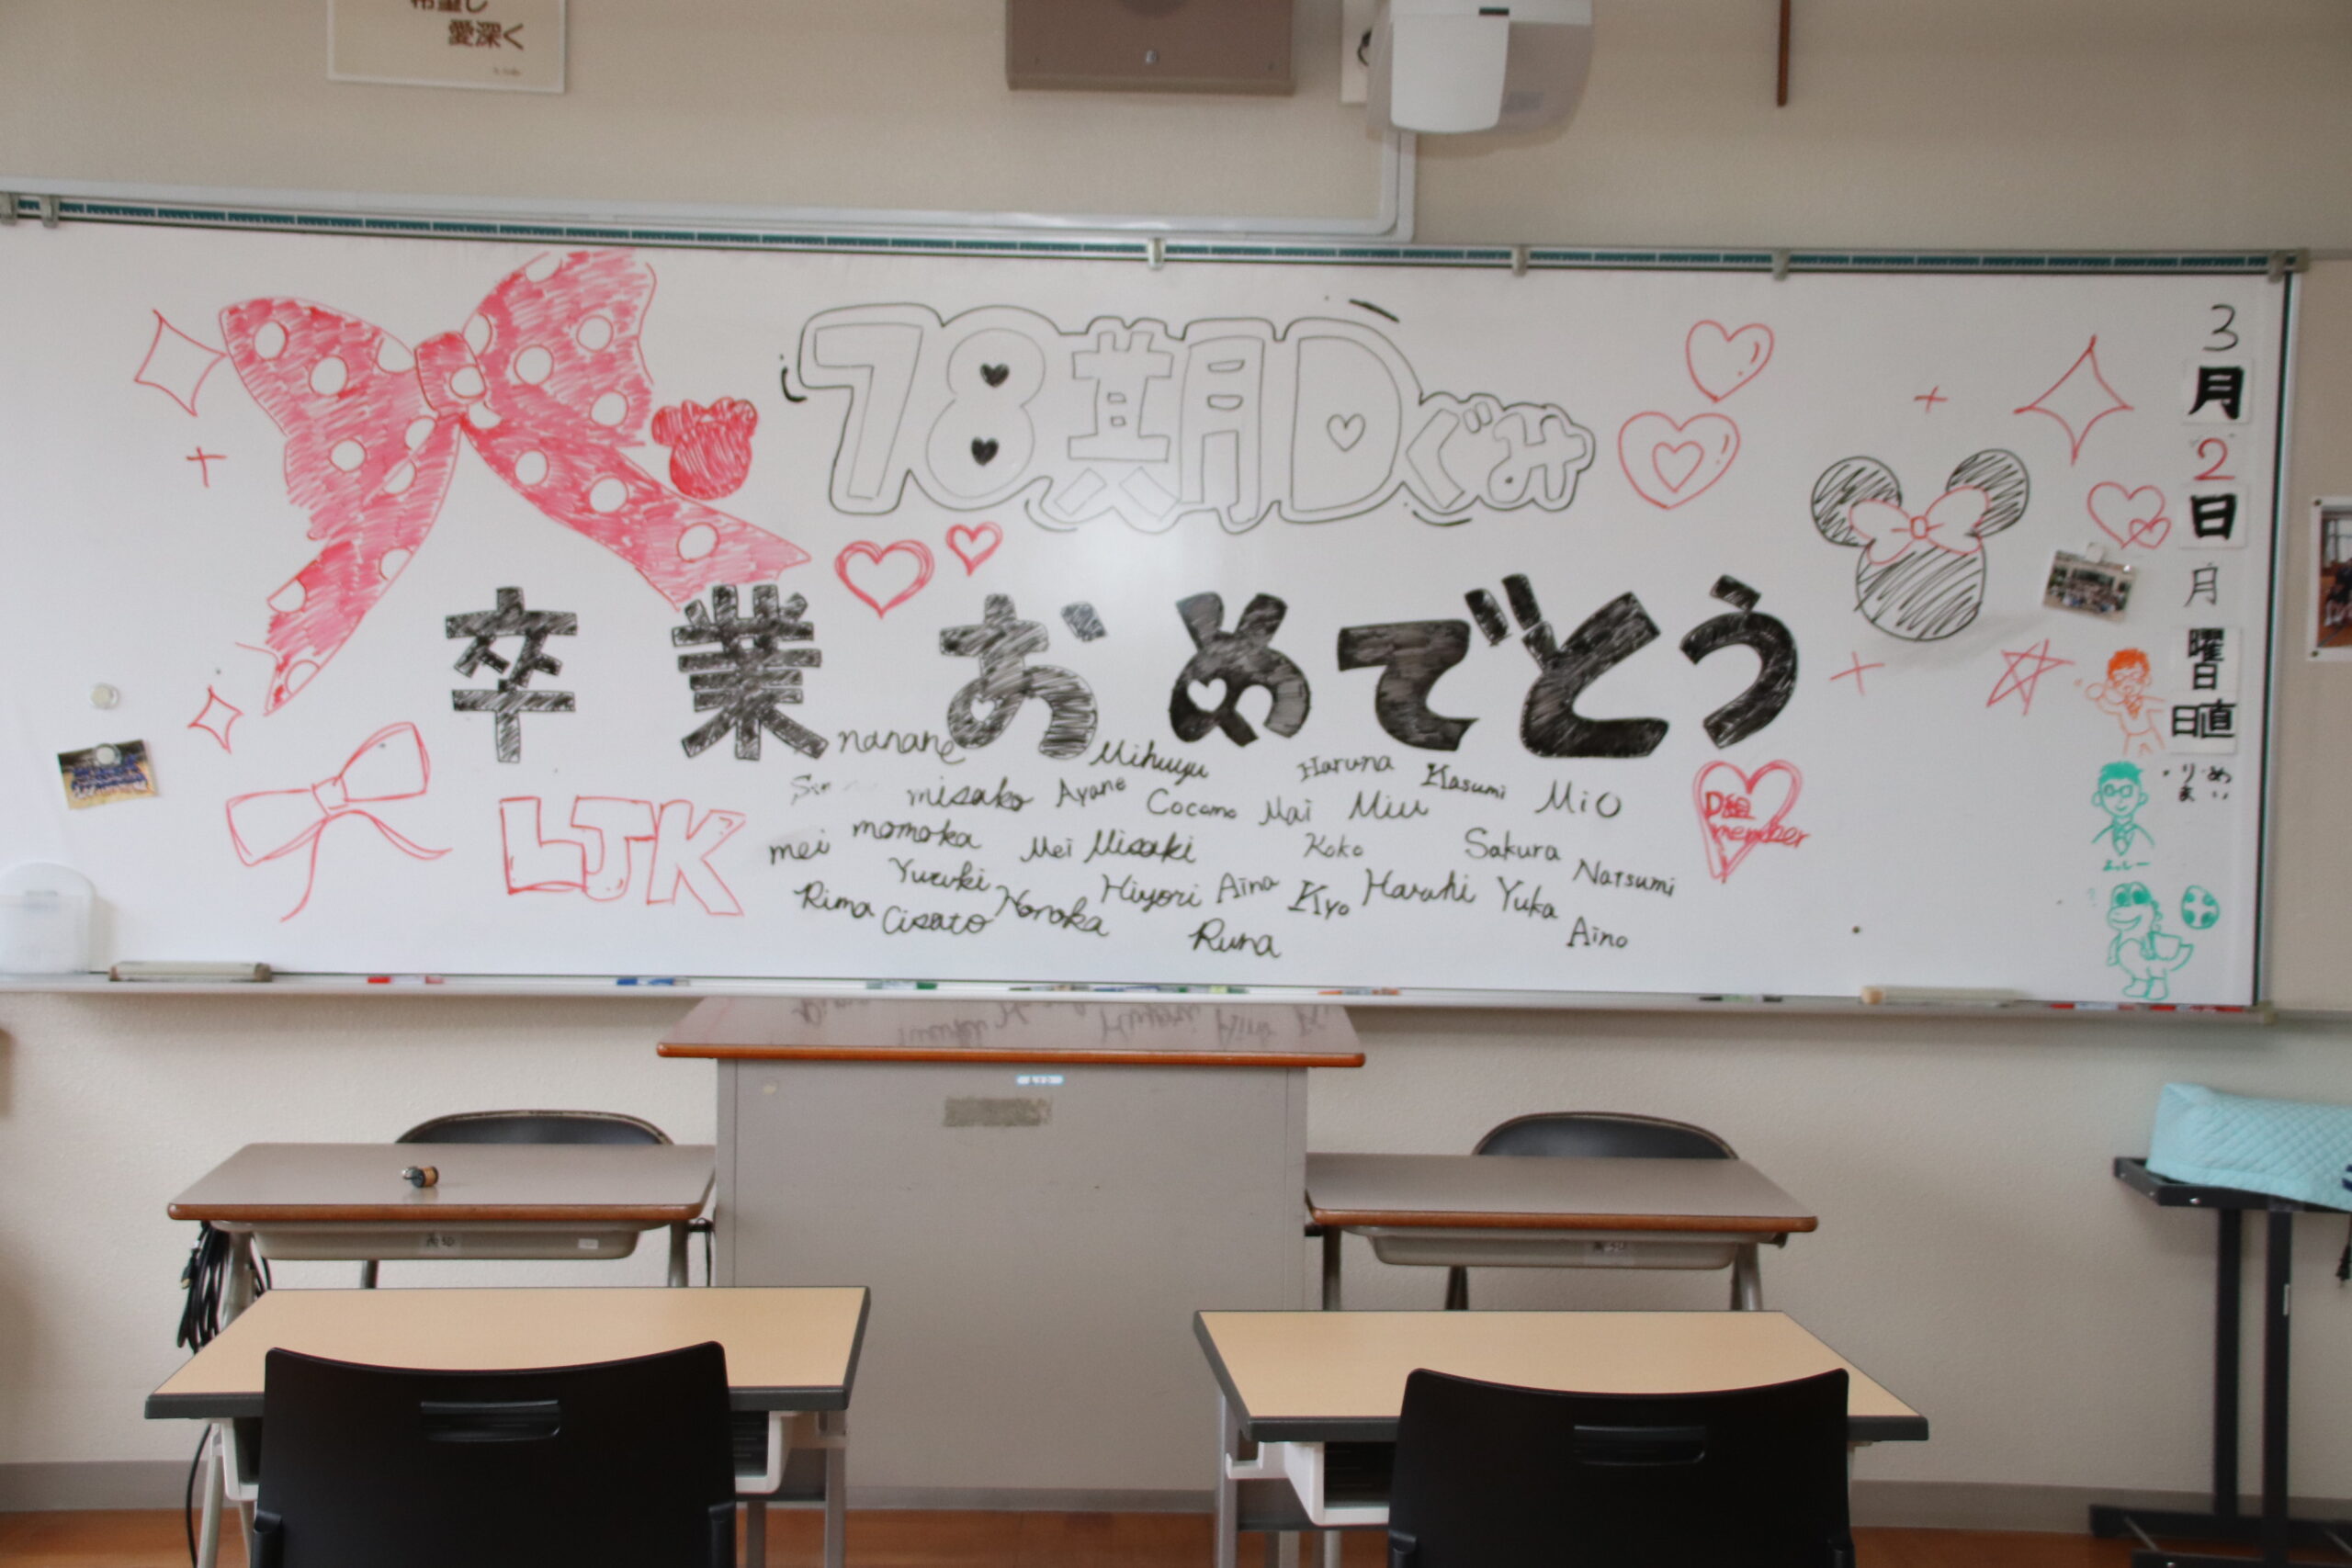 愛深く
78期Dぐみ
卒業おめでとう
3
月
2
日
月
曜日
日直
めい
りま
LJK
D組
member
nanane Mihuyu Haruna Kasumi Mio
misako Ayane Cocomo Mai Miu
mei momoka Mei Misaki Koko Sakura Natsumi
Yuzuki Hiyori Aina Kyo Haruhi Yuka
Rima Cisato Honoka Runa Aino